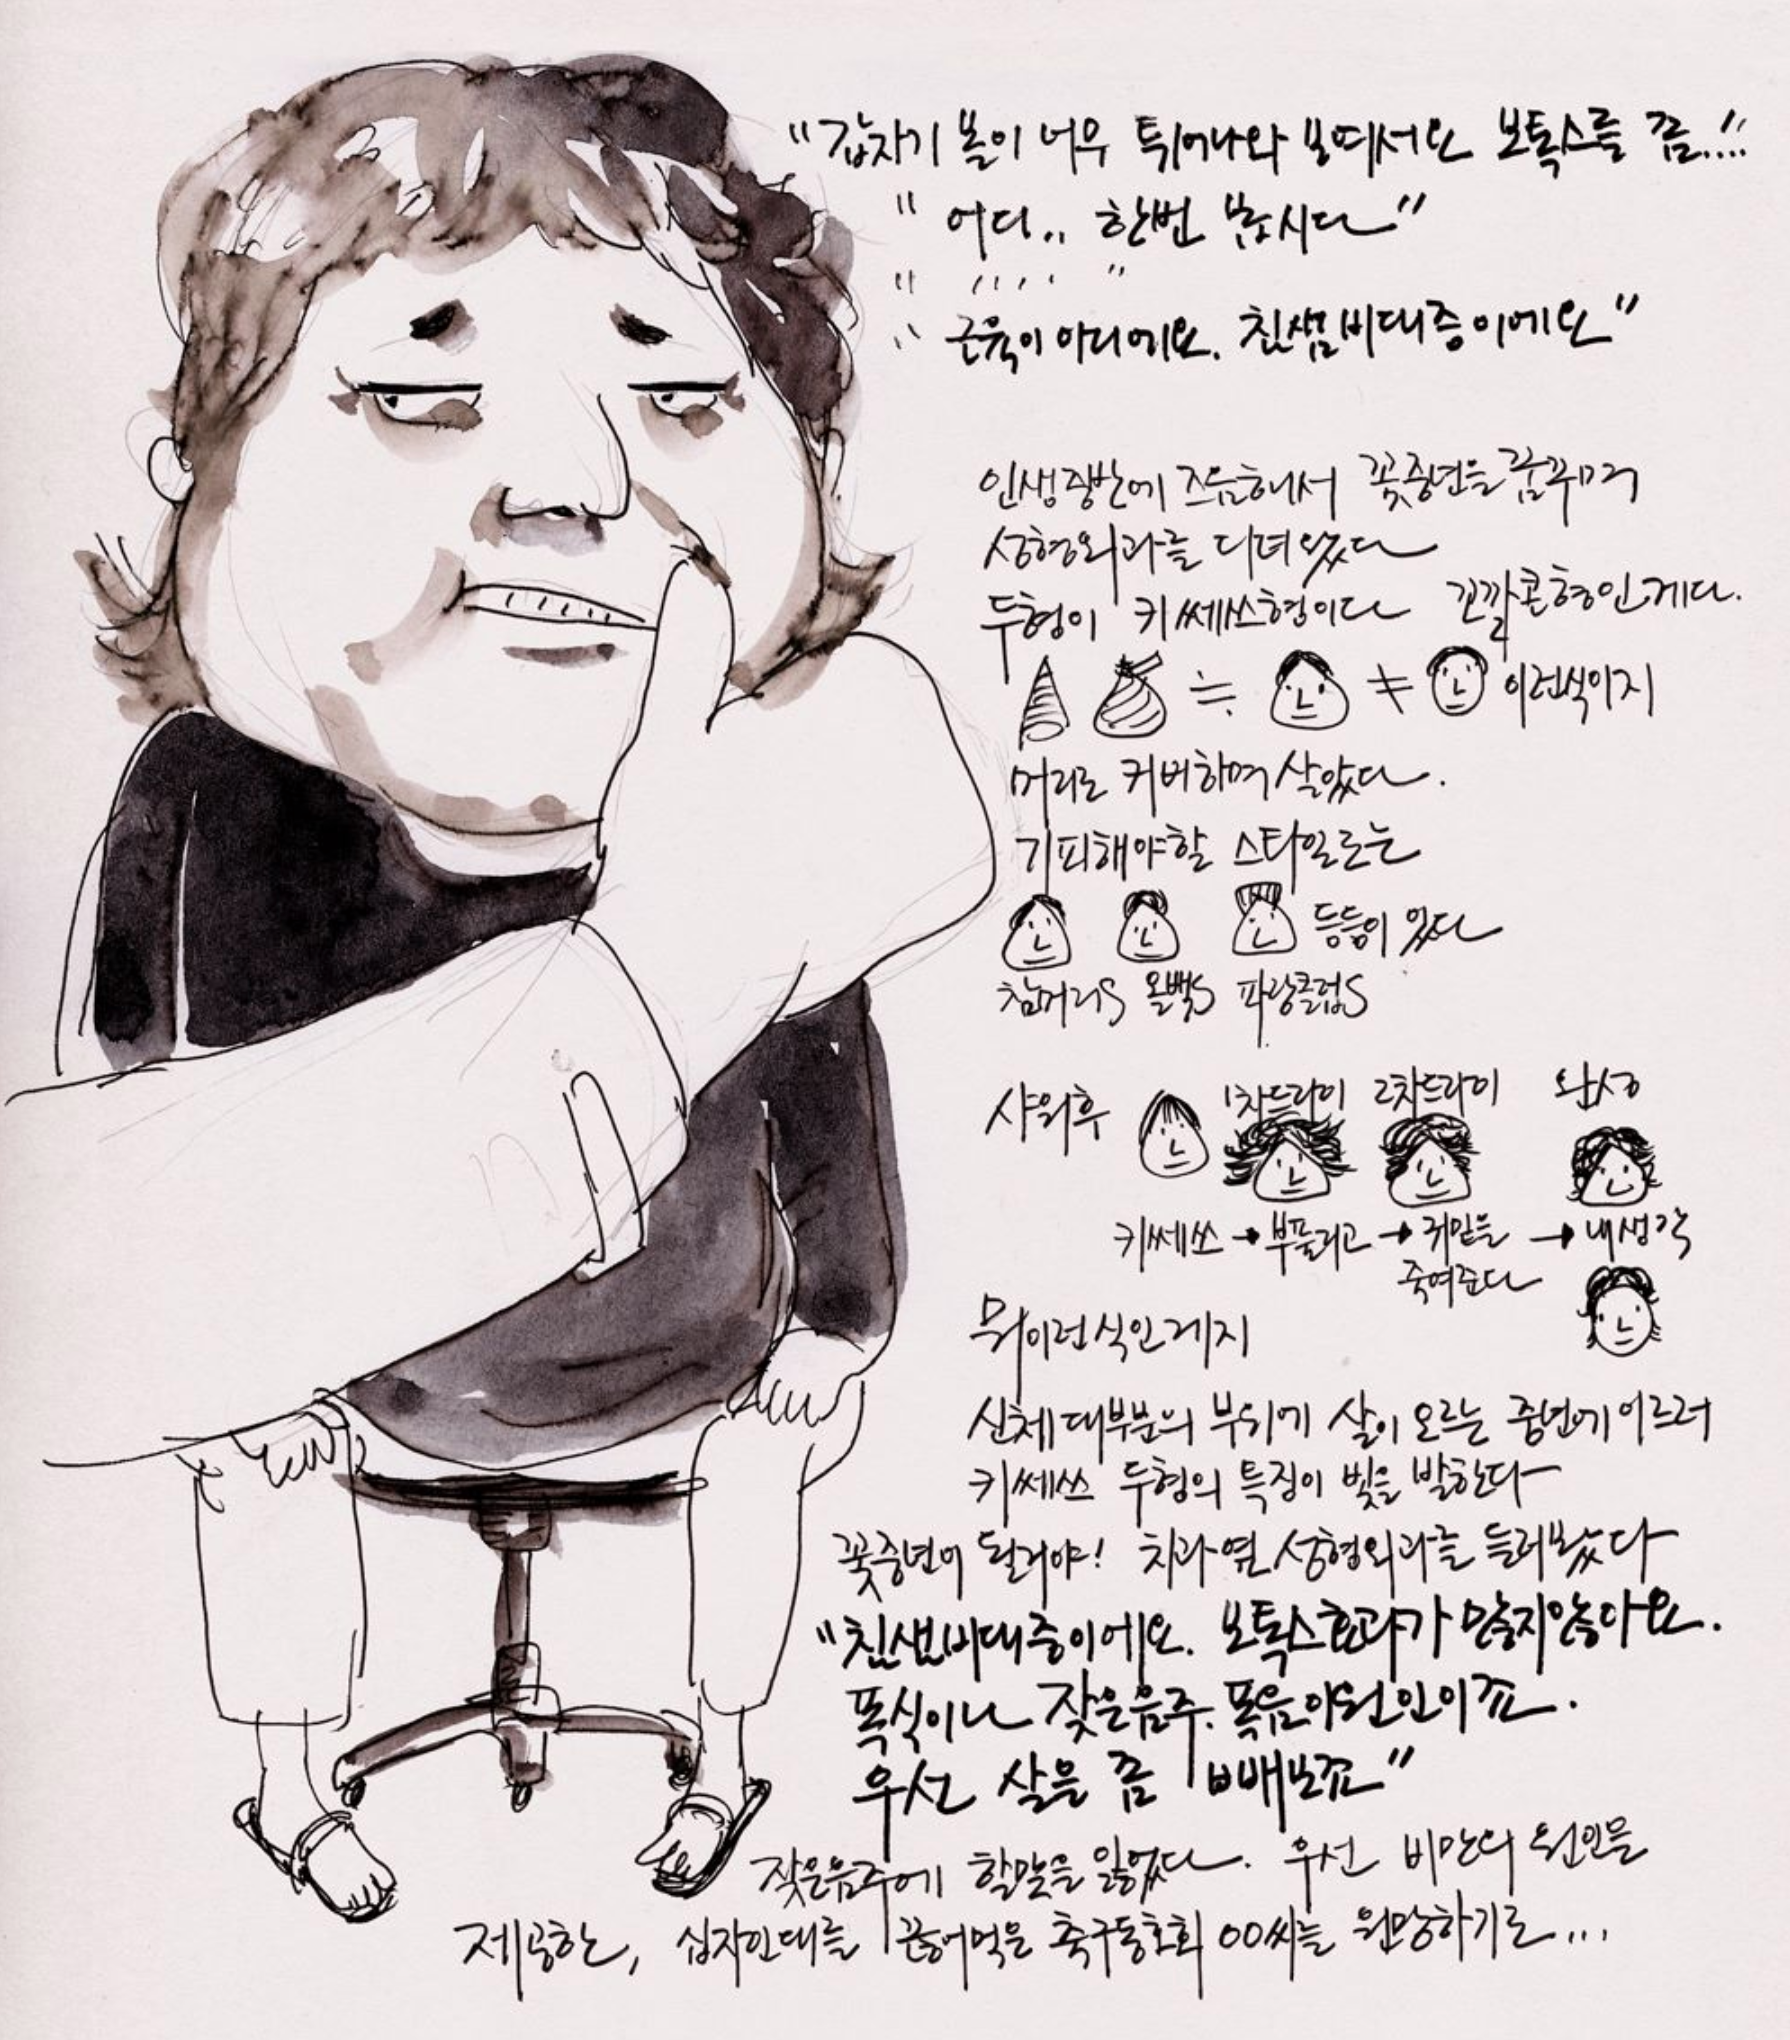 "갑자기 볼이 너무 튀어나와 보여서요 보톡스를 쫌...!!
" 어디.. 한번 봅시다"
" .... "
" 근육이 아니에요. 침샘비대증이에요"
인생중반에 즈음해서 꽃중년을 꿈꾸며
성형외과를 다녀왔다
두형이 키쎄쓰형이다 꼬깔콘형인게다.
≒ ≠ 이런식이지
머리로 커버하며 살았다.
기피해야할 스타일로는
등등이 있다
참머리S 올빽S 파랑클럽S
샤워후 1차드라이 2차드라이 완성
키쎄쓰 → 부풀리고 → 귀밑을 → 내생각
죽여준다
뭐이런식인게지
신체대부분의 부위에 살이 오르는 중년에 이르러
키쎄쓰 두형의 특징이 빛을 발한다
꽃중년이 될거야! 치과옆 성형외과를 들러봤다
"침샘비대증이에요. 보톡스효과가 많지않아요.
폭식이나 잦은음주. 폭음이원인이죠.
우선 살을 좀 빼보죠"
잦은음주에 할말을 잃었다. 우선 비만의 원인을
제공한, 십자인대를 끊어먹은 축구동호회 OO씨를 원망하기로...